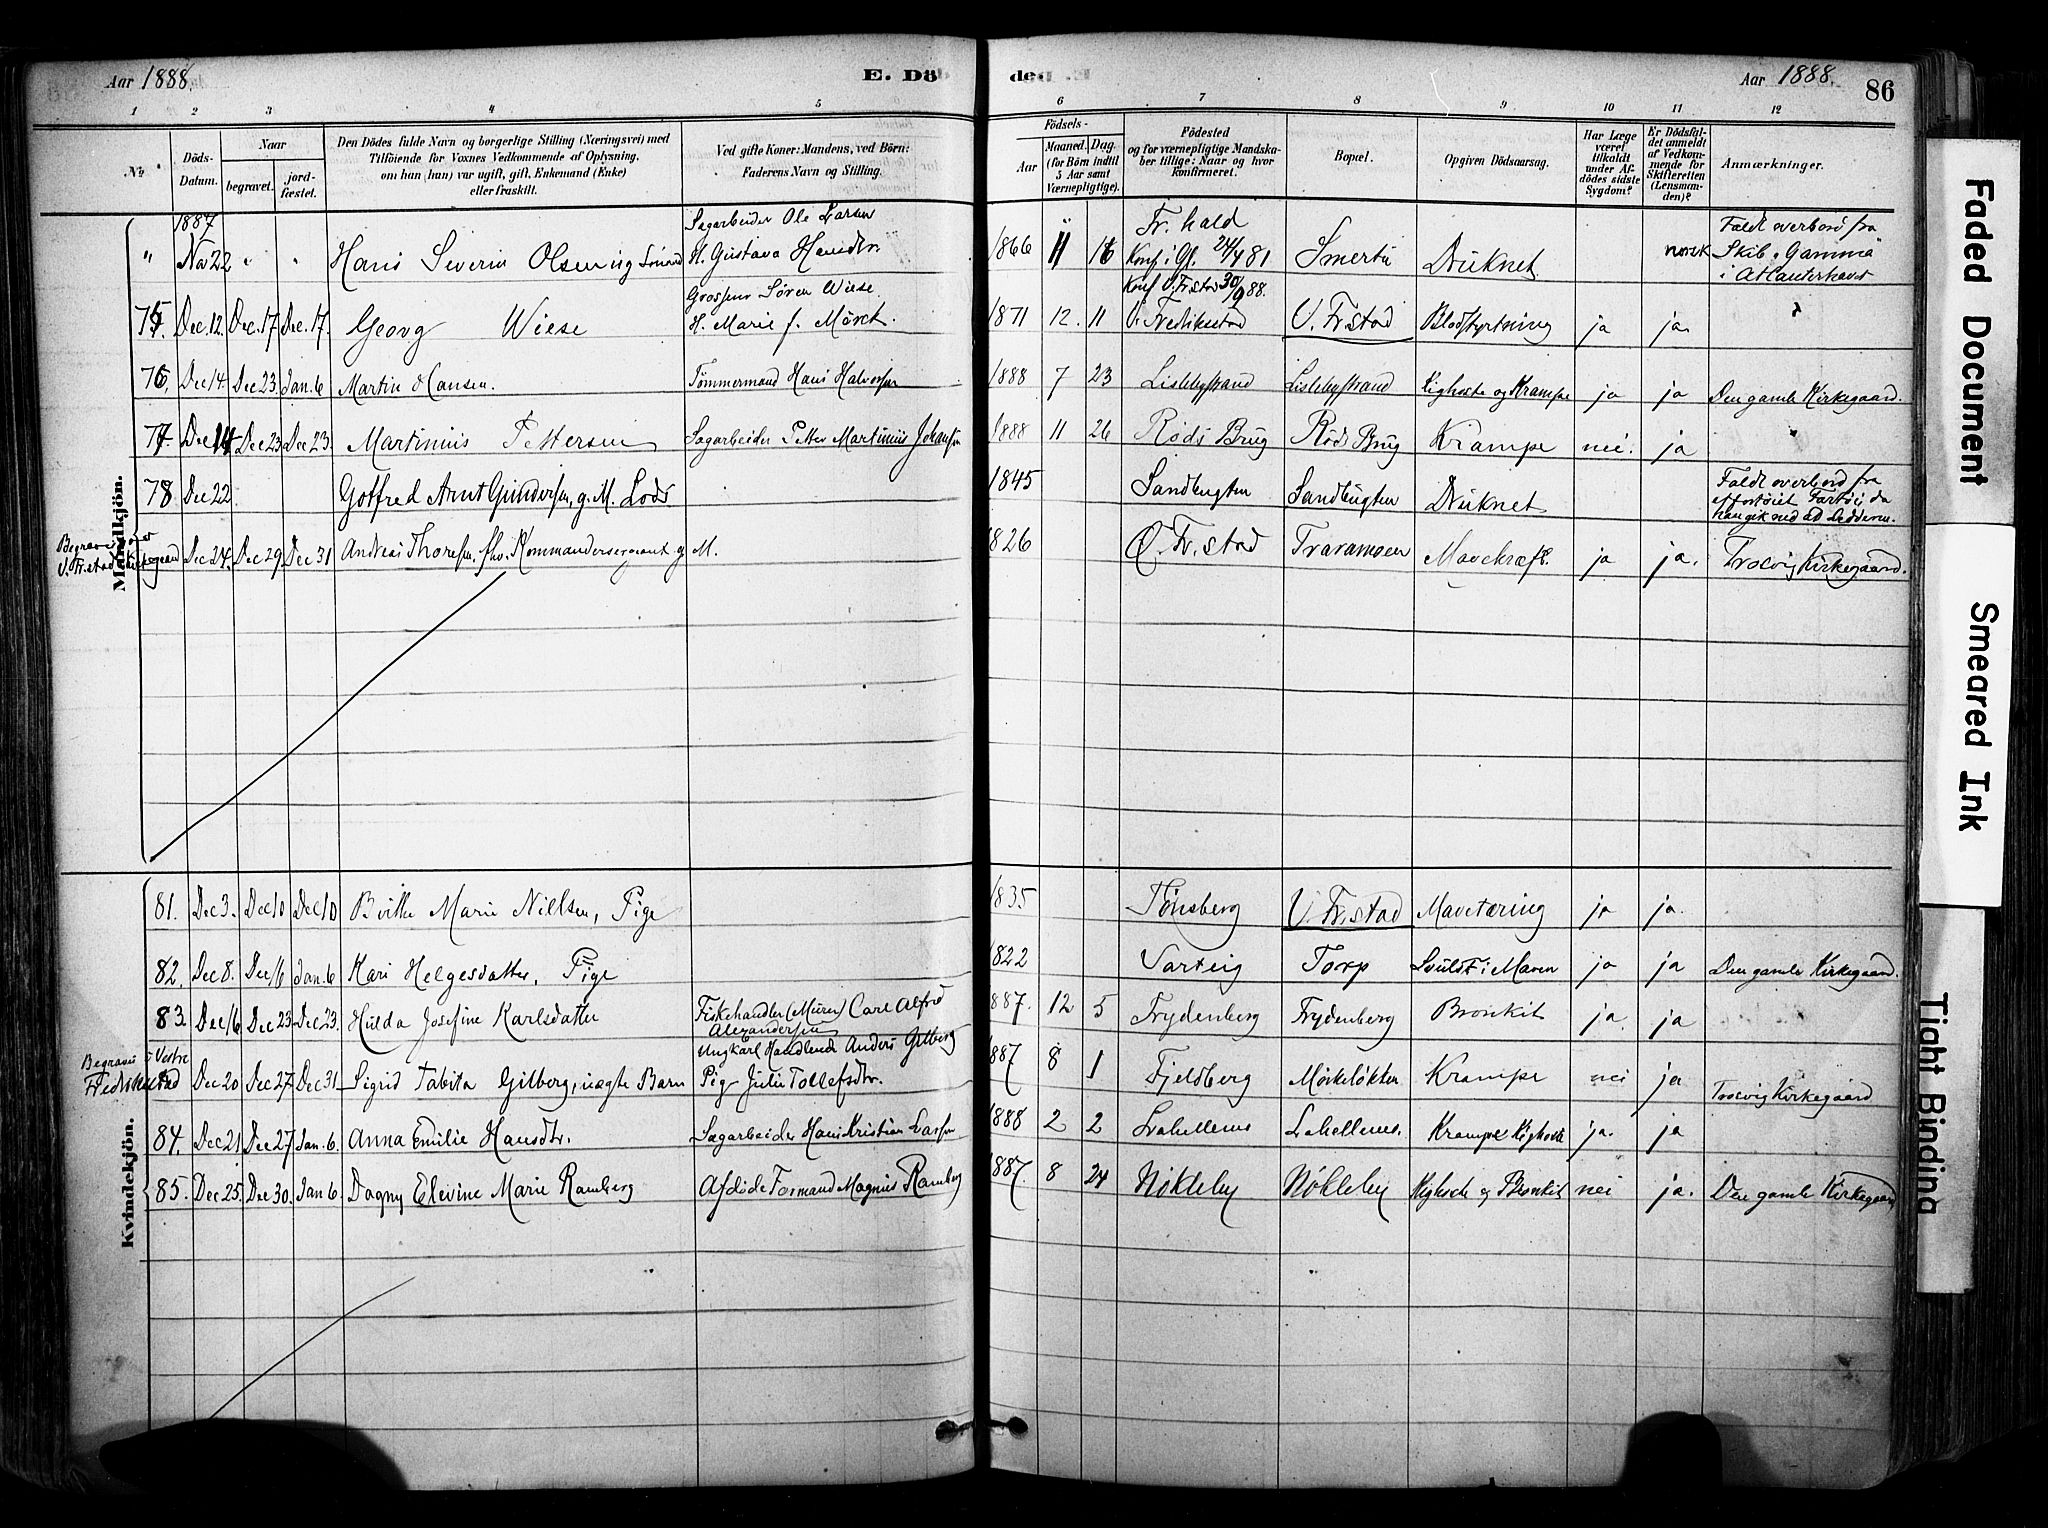 Aar 1888.
E. Dö
de
Aar 1888.
86
1 2 3 4 5
6 7 8 9 10 11 12
No
Döds-Datum.
Naar
begravet.
jord-fæstet.
Den Dödes fulde Navn og borgerlige Stilling (Næringsvei) med
Tilföiende for Voxnes Vedkommende af Oplysning,
om han (hun) var ugift, gift, Enkemand (Enke)
eller fraskilt.
Ved gifte Koner: Mandens, ved Börn:
Faderens Navn og Stilling.
Födsels-
Aar
Maaned. Dag.
(for Börn indtil
5 Aar samt
Værnepligtige).
Födested
og for værnepligtige Mandska-
ber tillige: Naar og hvor
konfirmeret.
Bopæl.
Opgiven Dödsaarsag.
Har Læge
været
tilkaldt
under Af-
dödes sidste
Sygdom?
Er Dödsfal-
det anmeldt
af Vedkom-
mende for
Skifteretten
(Lensman-
den)?
Anmærkninger.
Mandkjön.
1887
" Nov 22 " " Hans Severin Olsen ug Sömand
Sagarbeider Ole Larsen
H. Gustava Hansdtr.
1866 11 16 Fr. hald
Konf i Gl. 24/4 81
Smertu Druknet norsk
Faldt overbord fra
Skib "Gamma"
i Atlanterhavet
75. Dec. 12. Dec. 17 Dec. 17. Georg Wiese
Grosserer Søren Wiese.
H. Marie f. Møret.
1871 12. 11 Konf V. Fr.stad 30/9 88.
V. Fredrikstad V. Fr.stad Blodstyrtning ja ja.
76. Dec 14. Dec 23. Jan. 6 Martin Hansen. Tömmermand Hans Halvorsen 1888 7 23 Lislebystrand Lislebystrand Kighoste og Krampe ja ja Den gamle Kirkegaard.
77. Dec 14 Dec 23 Dec 23. Martinius Pettersen Sagarbeider Petter Martinius Johansen 1888 11 26 Røds Brug Røds Brug Krampe nei. ja
78 Dec 22 Gotfred Arnt Gundersen, g. M. Lods 1845 Sandbugten Sandbugten Druknet
Faldt overbord fra
et fortøiet Fartøi da
han gik ned ad Ledderen.
Begravet
V. Fr.stad Kirkegaard Dec. 24. Dec 29. Dec 31 Andreas Thoresen. fhv. Kommandersergeant g M. 1826 Ø. Fr.stad Traramsen Mavekræft. ja ja. Trosvig Kirkegaard.
Kvindekjön.
81. Dec 3. Dec 10 Dec 10 Birthe Marie Nielsen, Pige 1835 Tønsberg V. Fr.stad Mavetæring ja ja.
82. Dec 8. Dec 16 Jan. 6 Kari Helgesdatter, Pige 1822 Varteig Torp Svulst i Maven ja ja Den gamle Kirkegaard.
83. Dec 16 Dec 23 Dec 23. Hulda Josefine Karlsdatter Fiskehandler (Murer) Carl Alfred
Alexandersen
1887. 12 5 Frydenberg Frydenberg Bronkit ja. ja
Begravet i Vestre
Fredrikstad Dec 20 Dec 27 Dec 31 Sigrid Tabita Gilberg, uægte Barn
Ungkarl Handlende Anders Gilberg
Pig Julie Tollefsdtr.
1887 8 1 Fjeldberg Mørkeløkken Krampe nei ja Trosvig Kirkegaard
84. Dec 21 Dec 27 Jan. 6. Anna Emilie Hansdtr. Sagarbeider Hans Kristian Larsen 1888 2 2 Lahellemo Lahellemo. Krampe Kighoste ja. ja
85. Dec 25. Dec 30. Jan 6. Dagny Elevine Marie Ramberg Afdøde Formand Magnus Ramberg 1887. 8 24 Nøkleby Nøkleby Kighoste og Bronkit nei ja. Den gamle Kirkegaard
Faded Document
Smeared Ink
Tight Binding